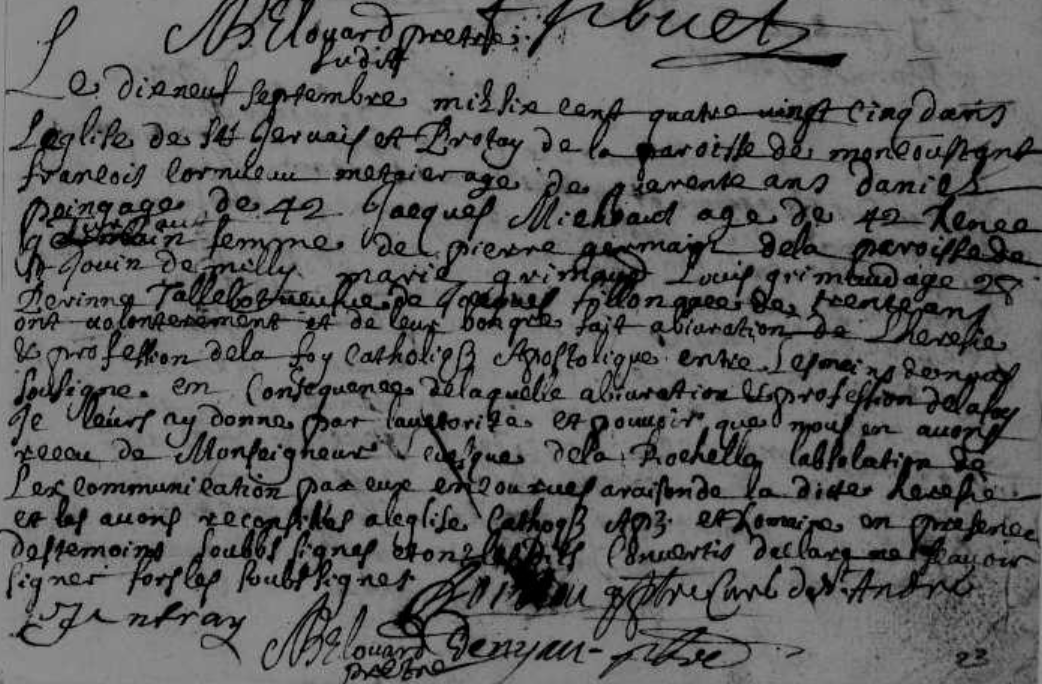 NBelouard pretre
Le dixneuf septembre mil six cent quatre vingt cinq dans
Leglise de St Gervais et Protay de la paroisse de moncoustant
francois Cornuau metaier age de quarente ans daniel
poing age de 42 Jacques Michaud age de 42 Renee
femme de pierre germain dela paroisse de
St Jouin de milly marie grimaud Louis grimaud age 28
Perinne Tallebot veufve de Jacques fillon agee de trente ans
ont volonterement et de leur bon gre fait abiuration de Lheresie
& profession dela foy Catholiq Apostolique entre Les mains de nous
sousigne en Consequence delaquelle abiuration & profession delafoy
Je leurs ay donne par lauctorite et pouvoir que nous en avons
receu de Monseigneur Levesque dela Rochelle labsolation de
Lexcommunication par eux encourues araison de la ditte heresie
et les avons reconsilles aleglise Cathoq Ap et Romaine en presence
destemoins soubs signes et ont lesdits Convertis declare ne scavoir
signer fors les soubsignes
ptre Cure de St Andre
Jantray
NBelouard
pretre
ptre
23